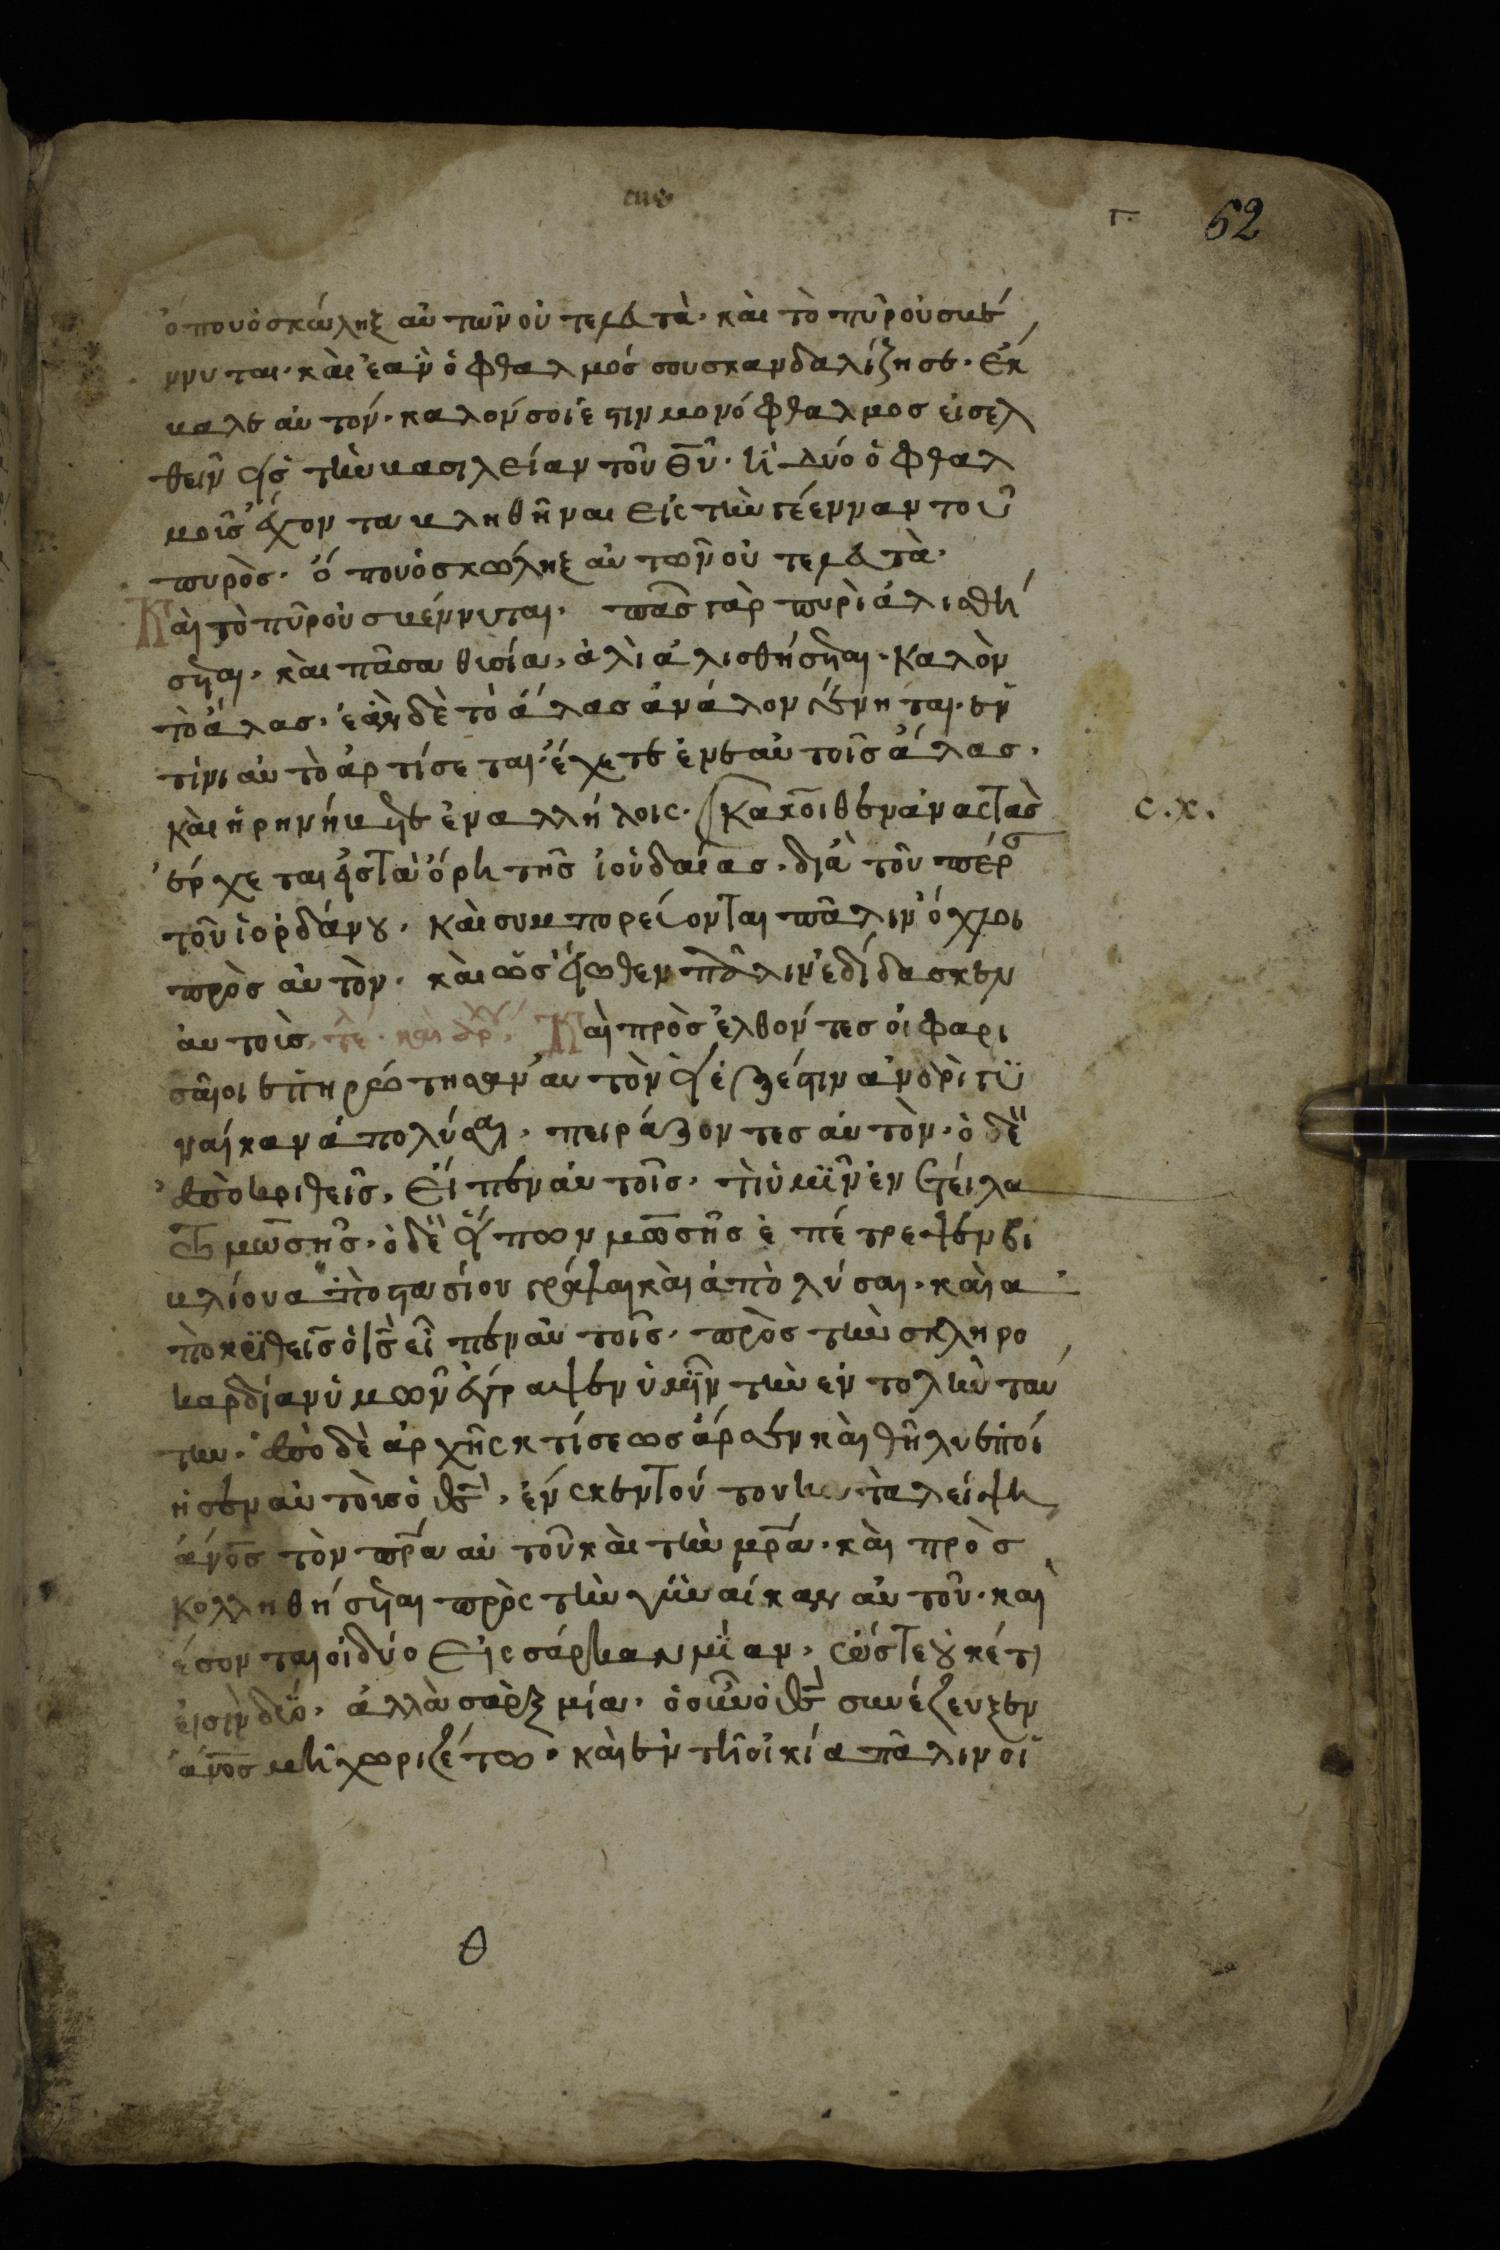 γ. 62
ὅπου ὁ σκώληξ αὐτῶν οὐ τελευτὰ· καὶ τὸ πῦρ οὐ σβέ
ννυται· καὶ ἐὰν ὁ ὀφθαλμός σου σκανδαλίζη σε· ἔκ
βαλε αὐτόν· καλόν σοι ἐστιν μονόφθαλμοσ εἰσελ
θεῖν εἰς τὴν βασιλείαν τοῦ θῦ· ἢ δύο ὀφθαλ
μοῖς ἔχοντα βληθῆναι εἰς τὴν γέενναν τοῦ
πυρὸς· ὅπου ὁ σκώληξ αὐτῶν οὐ τελευτὰ·
Καὶ τὸ πῦρ οὐ σβέννυται· πᾶς γὰρ πυρὶ ἁλισθή
σεται· καὶ πᾶσα θισία, ἁλὶ ἁλισθήσεται· Καλὸν
τὸ ἅλας· ἐὰν δὲ τὸ ἅλας ἄναλον γένηται· ἐν
τίνι αὐτὸ ἀρτίσεται· ἔχετε ἐν εαὐτοῖς ἅλας·
καὶ ἠρηνήβετε ἐν αλλήλοις· Κακοῖθεν ἀναστὰς
ἔρχεται εἰς τὰ ὅρη τῆς ἰουδαίας· διὰ τοῦ πέρ
τοῦ ἰορδάνου· καὶ συμπορεύονται πάλιν ὄχλοι
πρὸς αὐτὸν· καὶ ὡς εἴωθεν πάλιν ἐδίδασκεν
αὐτοὶς, τέλ· καὶ Καὶ πρὸσελθόντες οἱ φαρι
σαῖοι ἐπηρώτησαν αυτὸν εἰ ἔξέστιν ἀνδρὶ γυ
ναίκαν ἀπολύσαι· πειράζοντες αὐτὸν· ὁ δὲ
ἀποκριθεῖς, εἶπεν αὐτοῖς· τὶ ὑμῖν ἐνετείλα
το μωσῆς· ὁ δὲ εἶπων μωσῆς ἐπέτρεψεν βι
βλίον αποστασίου γράψαι καὶ ἀπολύσαι· καὶ α
ποκριθεῖς ὁ ις εἶπεν αὐτοῖς· πρὸς τὴν σκληρο
καρδίαν ὑμῶν ἔγραψεν ὑμῖν τὴν ἐντολὴν ταύ
την· ἀπὸ δὲ ἀρχῆς κτίσεως ἄρσεν καὶ θῆλυ ἐποί
ησεν αὐτοὺσ ὁ θς, ἕνεσκεν τούτου καταλείψη
ἄνος τὸν πρα αὐτοῦ καὶ τὴν μρα· καὶ πρὸσ
κολληθήσεται πρὸς τὴν γυναίκαν αὐτοῦ· καὶ
ἔσονται οἱ δύο εἰς σάρκαν μίαν· ὥστε οὐκέτι
εἰσὶν δύο· ἀλλὰ σὰρξ μία· ὁ οὖν ὁ θς συνέζευξεν
ἄνος μὴ χωριζέτω· καὶ ἐν τῆ οἰκία πάλιν οἱ
σ.χ.
θ